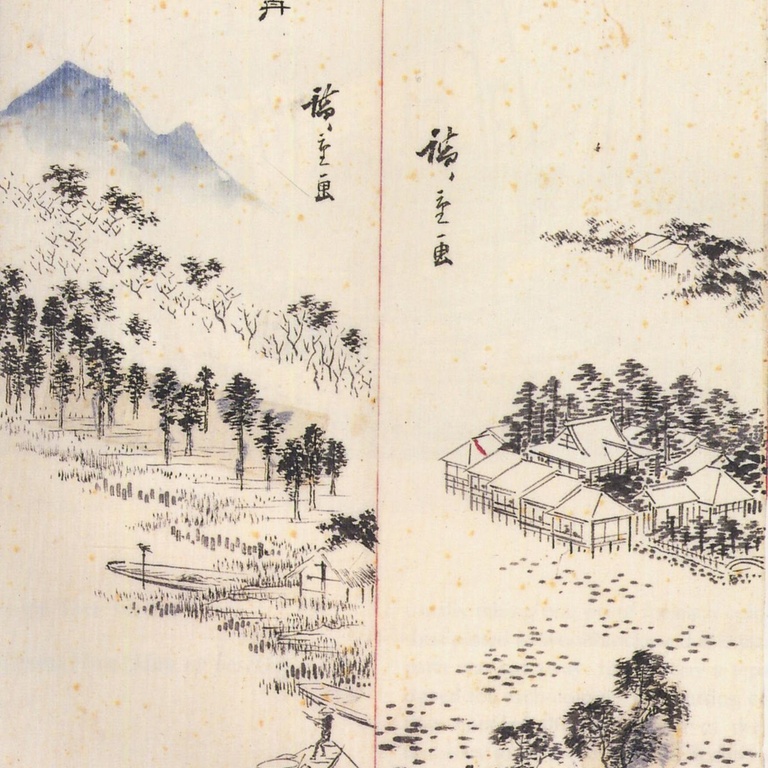 廣重画
廣重画